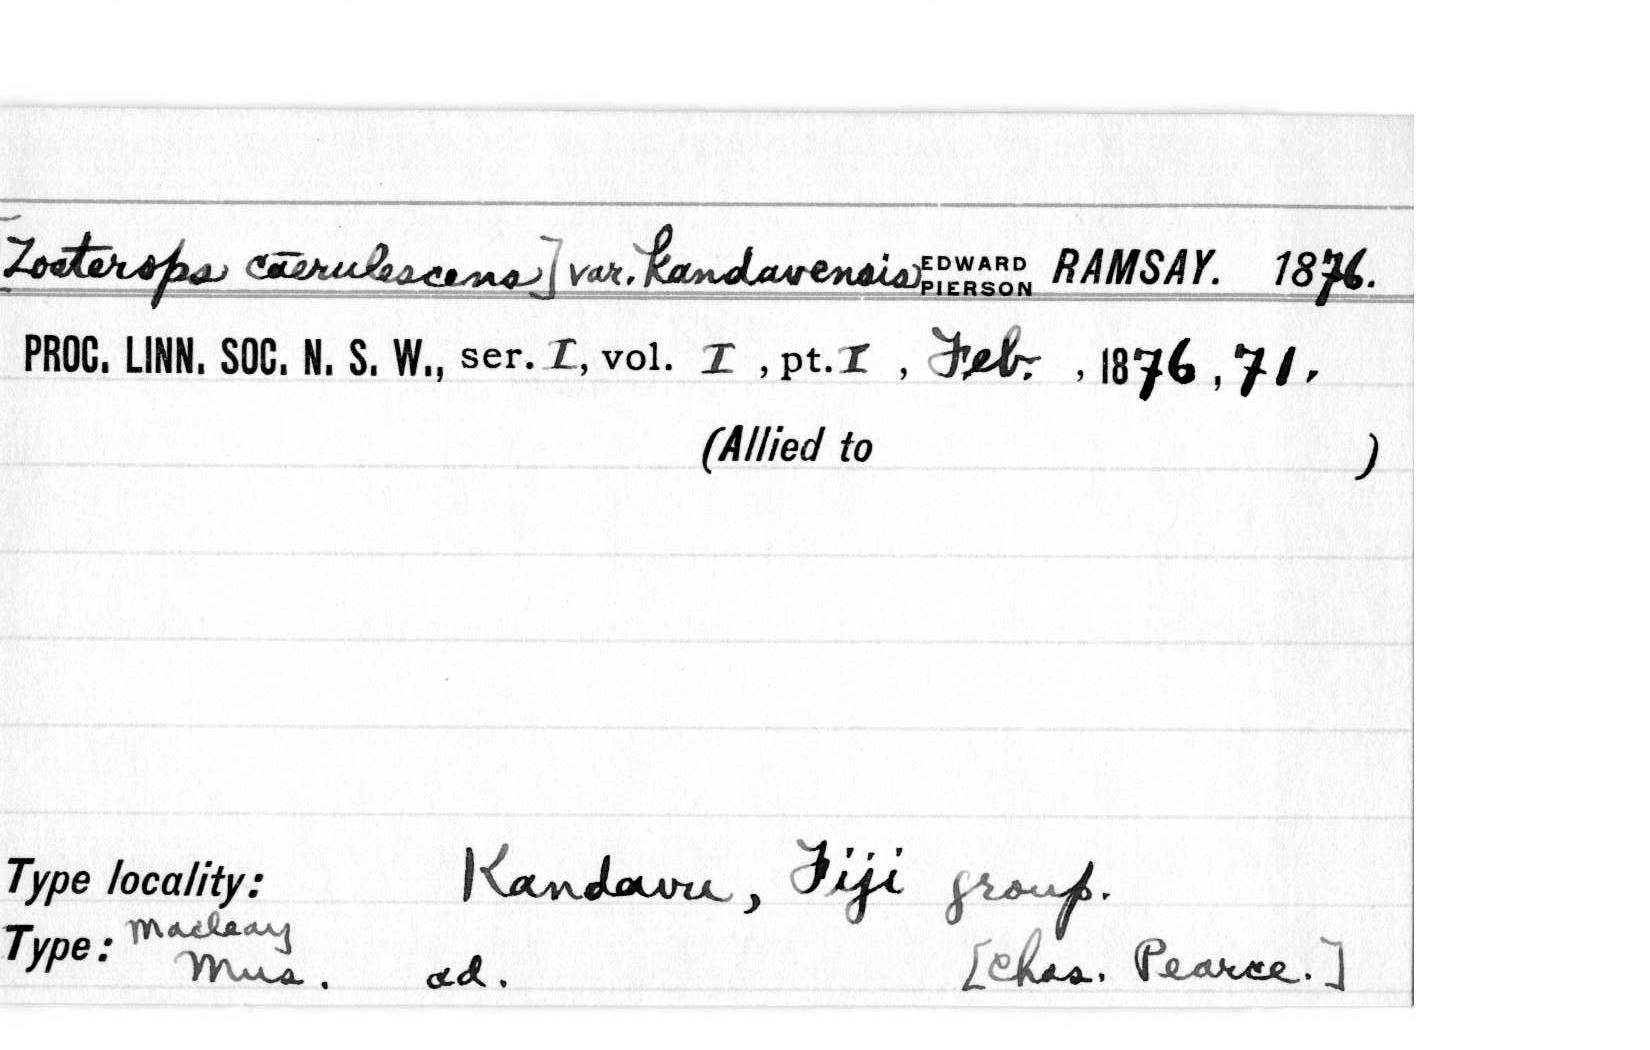 [Zosterops cāerulescens] var. kandavensis EDWARD PIERSON RAMSAY. 1876.
PROC. LINN. SOC. N. S. W., ser. I, vol. I , pt. I , Feb. , 1876 , 71.
(Allied to )
Type locality: Kandavu, Fiji group.
Type: Macleay Mus. ad. [Chas. Pearce.]